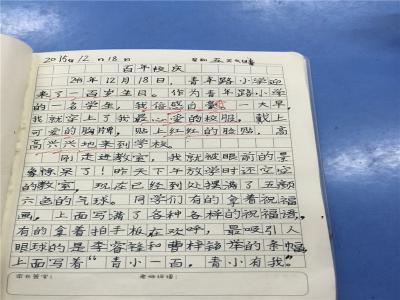 2015年12月18日 星期五 天气晴
百年校庆
2015年12月18日,青年路小学迎
来了一百岁生日。作为青年路小学
的一名学生,我倍感自豪。一大早,
我就穿上了我最心爱的校服,戴上
可爱的胸牌,贴上红红的脸贴,高
高兴兴地来到学校。
刚走进教室,我就被眼前的景
象惊呆了!昨天下午放学时还空空
的教室,现在已经到处摆满了五颜
六色的气球。同学们有的拿着祝福
画,上面写满了各种各样的祝福语,
有的拿着拍手板在欢呼,最吸引人
眼球的是李睿锋和曹梓铭举的条幅,
上面写着"青小一面,青小有我"。
家长签字: 老师评语: